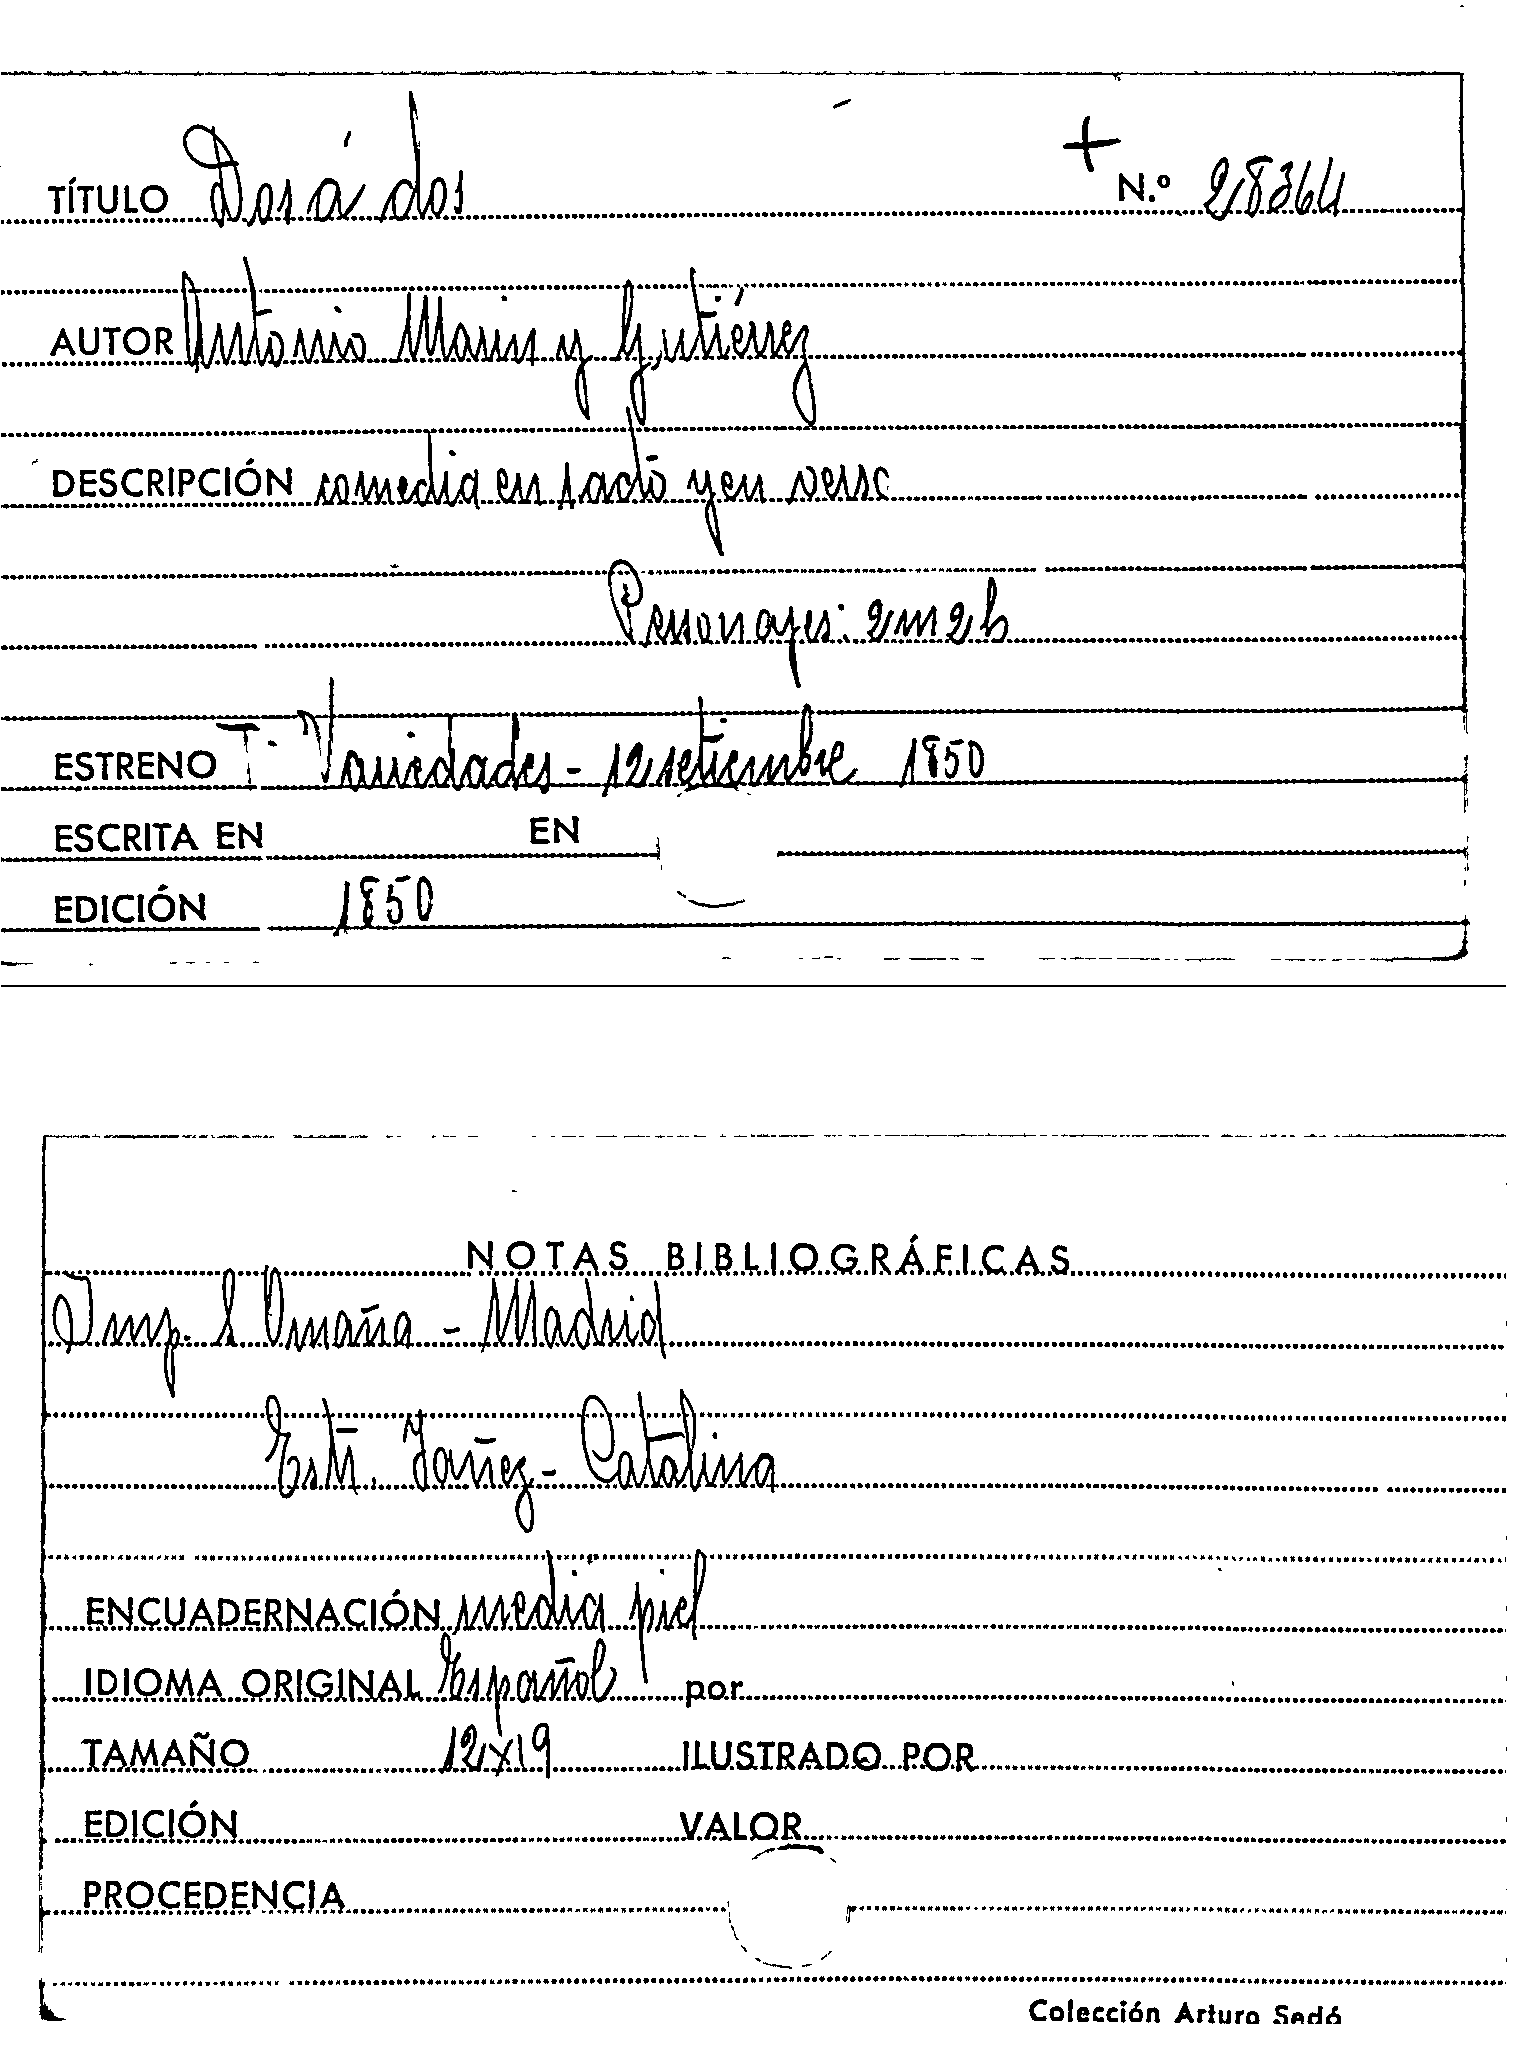 +
TÍTULO Dos á dos N.º 28364
AUTOR Antonio Marin y Gutiérrez
DESCRIPCIÓN comedia en 1 acto y en verso
Personajes: 2 m 2 h
ESTRENO T. Variedades - 12 setiembre 1850
ESCRITA EN EN
EDICIÓN 1850
NOTAS BIBLIOGRÁFICAS
Imp. S Omaña - Madrid
Estr. Yañez - Catalina
ENCUADERNACIÓN media piel
IDIOMA ORIGINAL Español por
TAMAÑO 12x19 ILUSTRADO POR
EDICIÓN VALOR
PROCEDENCIA
Colección Arturo Sedó